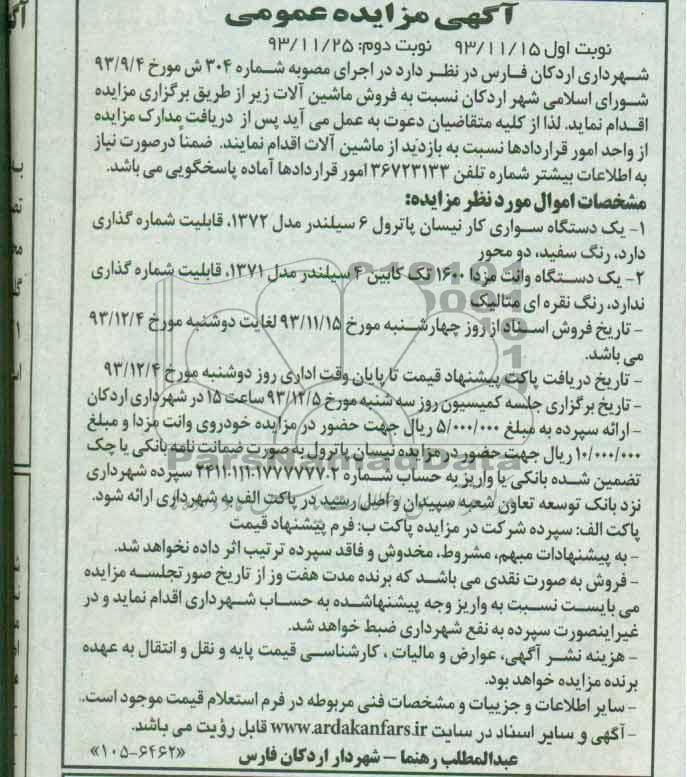 آگهی مزایده عمومی
نوبت اول ۹۳/۱۱/۱۵ نوبت دوم: ۹۳/۱۱/۲۵
شهرداری اردکان فارس در نظر دارد در اجرای مصوبه شماره ۳۰۴ ش مورخ ۹۳/۹/۴
شورای اسلامی شهر اردکان نسبت به فروش ماشین آلات زیر از طریق برگزاری مزایده
اقدام نماید. لذا از کلیه متقاضیان دعوت به عمل می آید پس از دریافت مدارک مزایده
از واحد امور قراردادها نسبت به بازدید از ماشین آلات اقدام نمایند. ضمناً درصورت نیاز
به اطلاعات بیشتر شماره تلفن ۳۶۷۲۳۱۳۳ امور قراردادها آماده پاسخگویی می باشد.
مشخصات اموال مورد نظر مزایده:
۱- یک دستگاه سواری کار نیسان پاترول ۶ سیلندر مدل ۱۳۷۲، قابلیت شماره گذاری
دارد، رنگ سفید، دو محور
۲- یک دستگاه وانت مزدا ۱۶۰۰ تک کابین ۴ سیلندر مدل ۱۳۷۱، قابلیت شماره گذاری
ندارد، رنگ نقره ای متالیک
- تاریخ فروش اسناد از روز چهارشنبه مورخ ۹۳/۱۱/۱۵ لغایت دوشنبه مورخ ۹۳/۱۲/۴
می باشد.
- تاریخ دریافت پاکت پیشنهاد قیمت تا پایان وقت اداری روز دوشنبه مورخ ۹۳/۱۲/۴
- تاریخ برگزاری جلسه کمیسیون روز سه شنبه مورخ ۹۳/۱۲/۵ ساعت ۱۵ در شهرداری اردکان
- ارائه سپرده به مبلغ ۵/۰۰۰/۰۰۰ ریال جهت حضور در مزایده خودروی وانت مزدا و مبلغ
۱۰/۰۰۰/۰۰۰ ریال جهت حضور در مزایده نیسان پاترول به صورت ضمانت نامه بانکی یا چک
تضمین شده بانکی یا واریز به حساب شماره ۲۴۱۱۰۱۱۱۰۱۷۷۷۷۷۷۰۲ سپرده شهرداری
نزد بانک توسعه تعاون شعبه سپیدان و اصل رسید در پاکت الف به شهرداری ارائه شود.
پاکت الف: سپرده شرکت در مزایده پاکت ب: فرم پیشنهاد قیمت
- به پیشنهادات مبهم، مشروط، مخدوش و فاقد سپرده ترتیب اثر داده نخواهد شد.
- فروش به صورت نقدی می باشد که برنده مدت هفت روز از تاریخ صورتجلسه مزایده
می بایست نسبت به واریز وجه پیشنهاشده به حساب شهرداری اقدام نماید و در
غیر اینصورت سپرده به نفع شهرداری ضبط خواهد شد.
- هزینه نشر آگهی، عوارض و مالیات ، کارشناسی قیمت پایه و نقل و انتقال به عهده
برنده مزایده خواهد بود.
- سایر اطلاعات و جزییات و مشخصات فنی مربوطه در فرم استعلام قیمت موجود است.
- آگهی و سایر اسناد در سایت www.ardakanfars.ir قابل رؤیت می باشد.
عبدالمطلب رهنما – شهردار اردکان فارس «۱۰۵-۶۴۶۲»
ParsNamadData